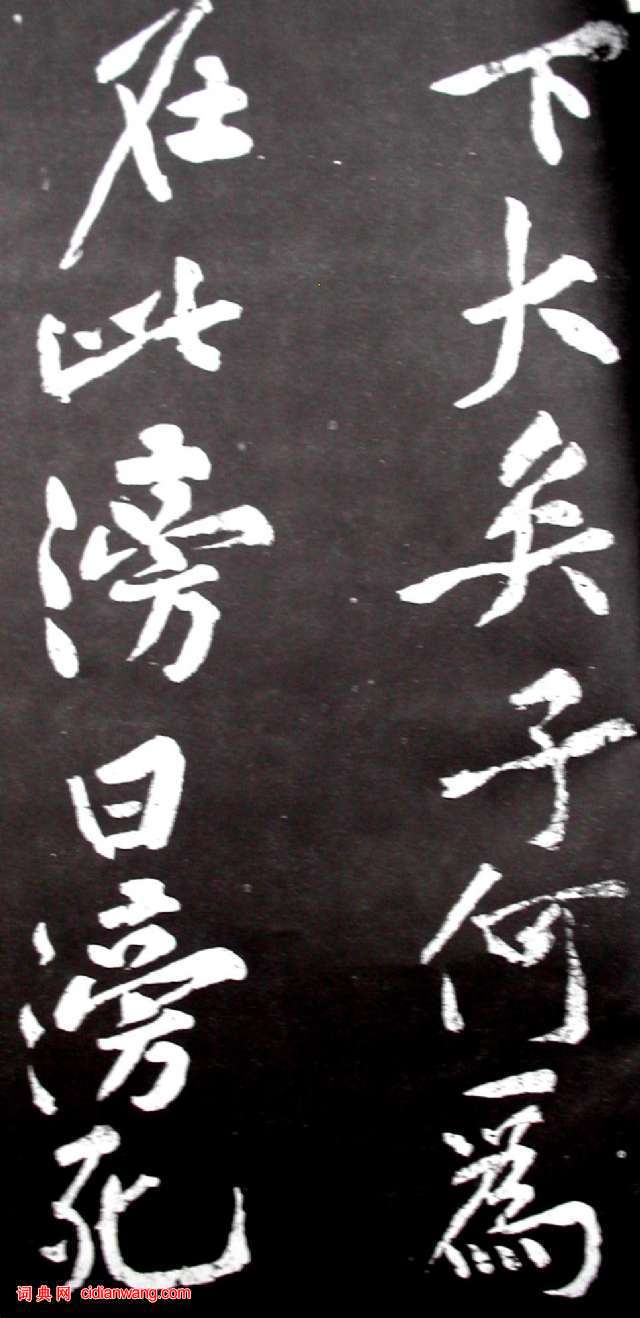 下大矣子何爲
在此滂曰滂死
词典网 cidianwang.com